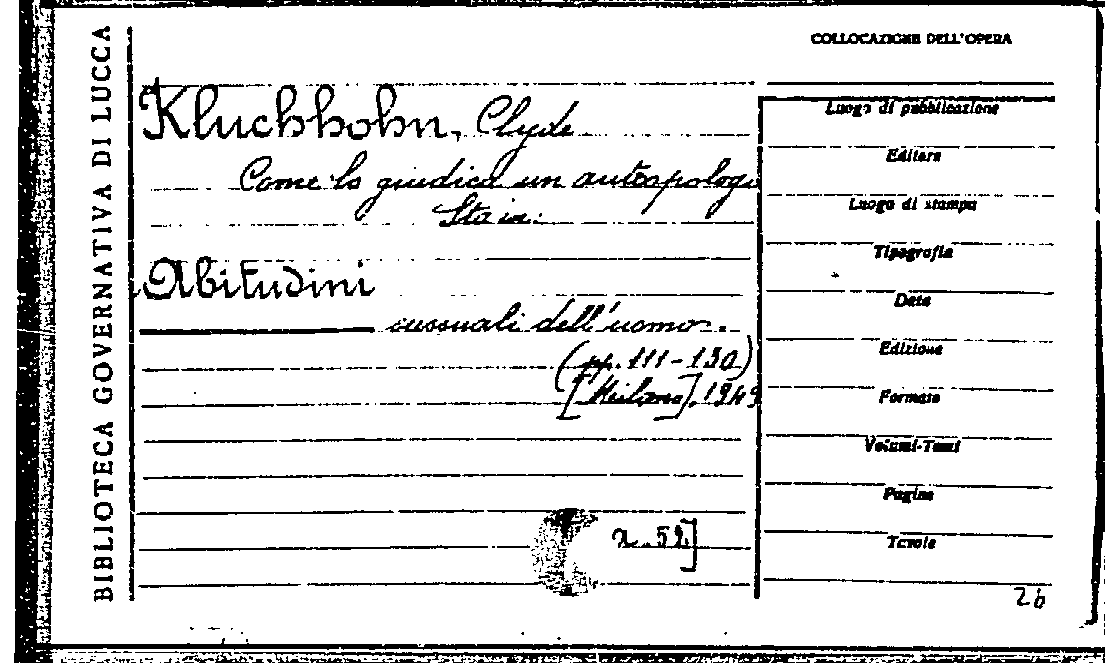 BIBLIOTECA GOVERNATIVA DI LUCCA
COLLOCAZIONE DELL'OPERA
Kluchhohn, Clyde
Come lo giudica un antropologo
Sta in:
Abitudini
sessuali dell'uomo.
(pp. 111-130)
[Milano], 1949
52]
Luogo di pubblicazione
Editore
Luogo di stampa
Tipografia
Data
Edizione
Formato
Volumi-Tomi
Pagine
Tavole
26